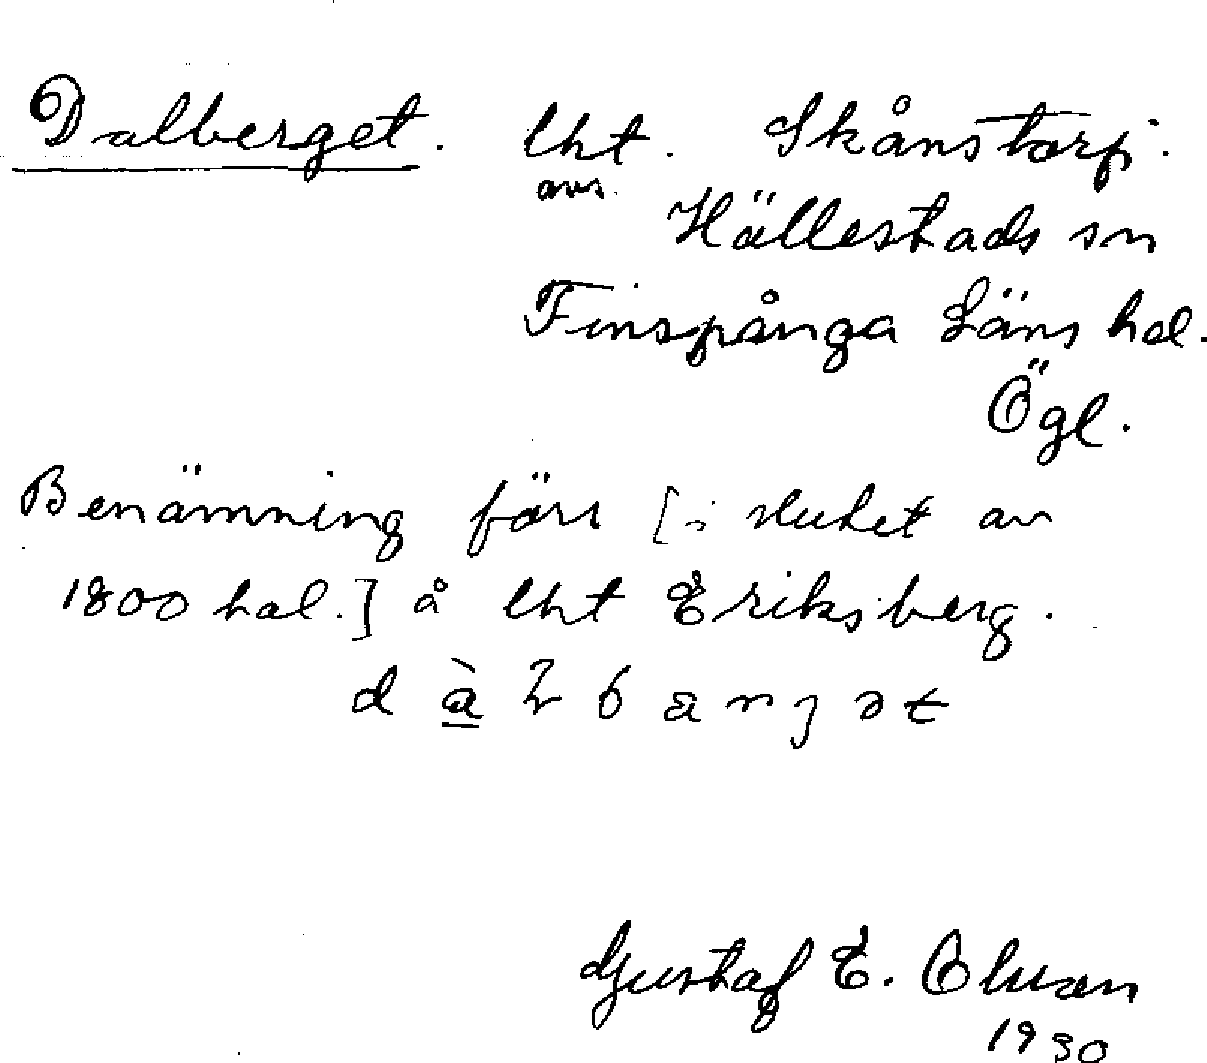 Dalberget. lht. Skånstorp.
avs.
Hällestads sn
Finspånga Läns hd.
Ögl.
Benämning förr [i slutet av
1800 tal.] å lht Eriksberg.
Gustaf E. Olsson
1930